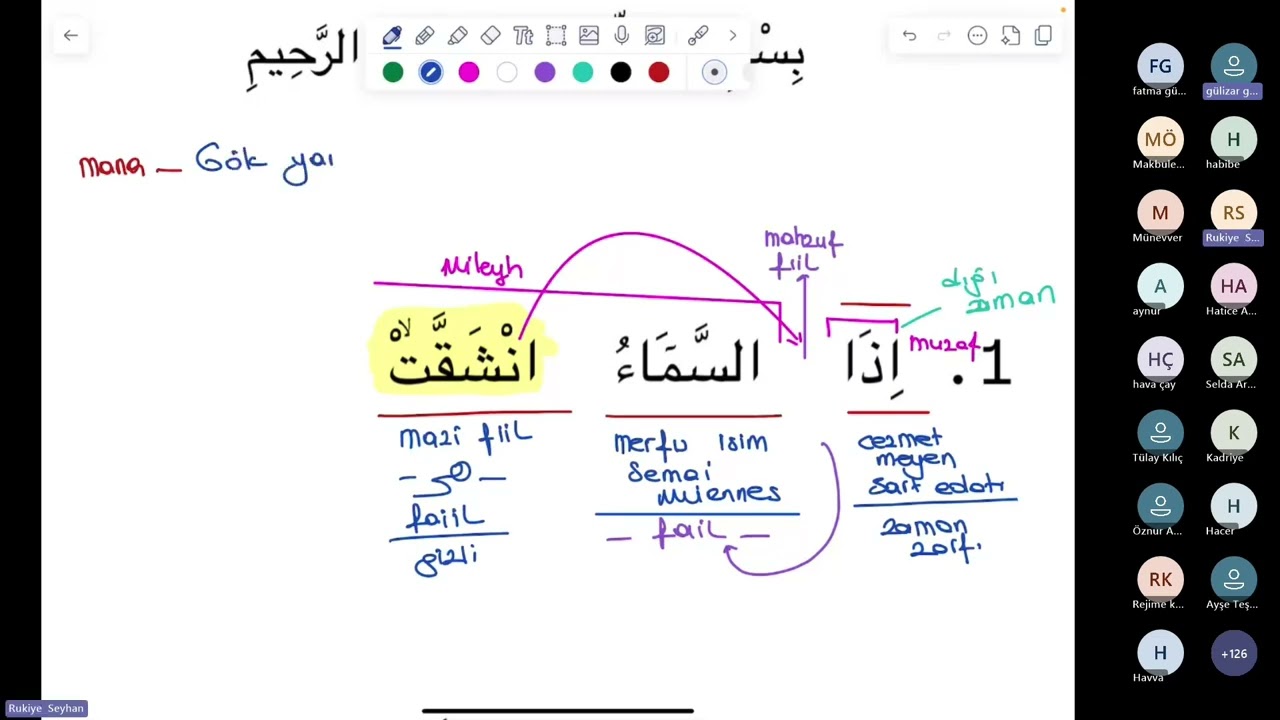 بِسْ
الرَّحِيمِ
mana — Gök yaı
mahzuf
fiil
Mileyh
dığı
zaman
muzaf
1. اِذَا السَّمَاءُ انْشَقَّتْۙ
cezmet
meyen
şart edatı
zaman
zarfı
merfu isim
Semai
Müennes
— fail —
mazi fiil
— هي —
faiil
gizli
FG
fatma gü...
gülizar g...
MÖ
Makbule...
H
habibe
M
Münevver
RS
Rukiye S...
A
aynur
HA
Hatice A...
HÇ
hava çay
SA
Selda Ar...
Tülay Kılıç
K
Kadriye
Öznur A...
H
Hacer
RK
Rejime k...
Ayşe Teş...
H
Havva
+126
Rukiye Seyhan
Tt